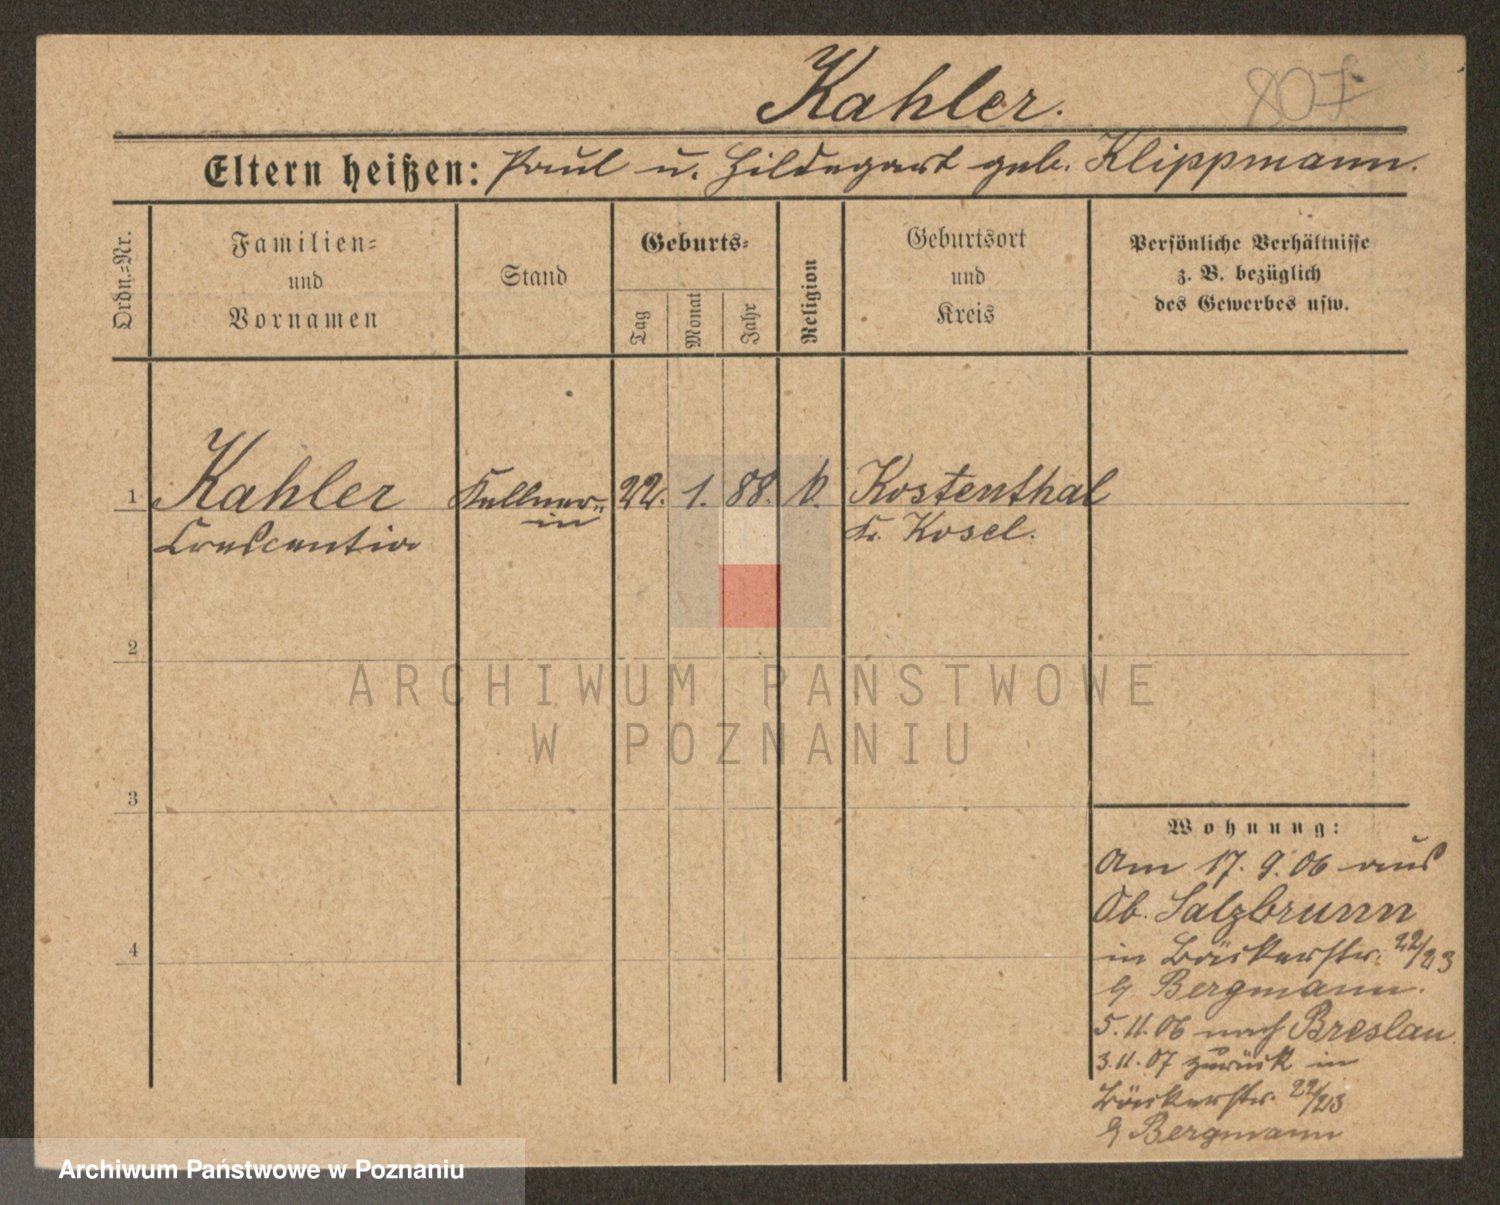 Kahler.
807
Eltern heißen: Paul u. Hildegart geb. Klippmann.
Ordn.=Nr.
Familien=
und
Vornamen
Stand
Geburts=
Tag
Monat
Jahr
Religion
Geburtsort
und
Kreis
Persönliche Verhältnisse
z. B. bezüglich
des Gewerbes usw.
1 Kahler Kellner= 22. 1. 88. k. Kostenthal
Crescentia in Kr. Kosel.
2
ARCHIWUM PAŃSTWOWE
W POZNANIU
3
Wohnung:
Am 17. 9. 06 aus
Ob. Salzbrunn
4
in Bäckerstr. 22/23
b/ Bergmann.
5.11.06 nach Breslau
3.11.07 zurück in
Bäckerstr. 22/23
b/ Bergmann
Archiwum Państwowe w Poznaniu